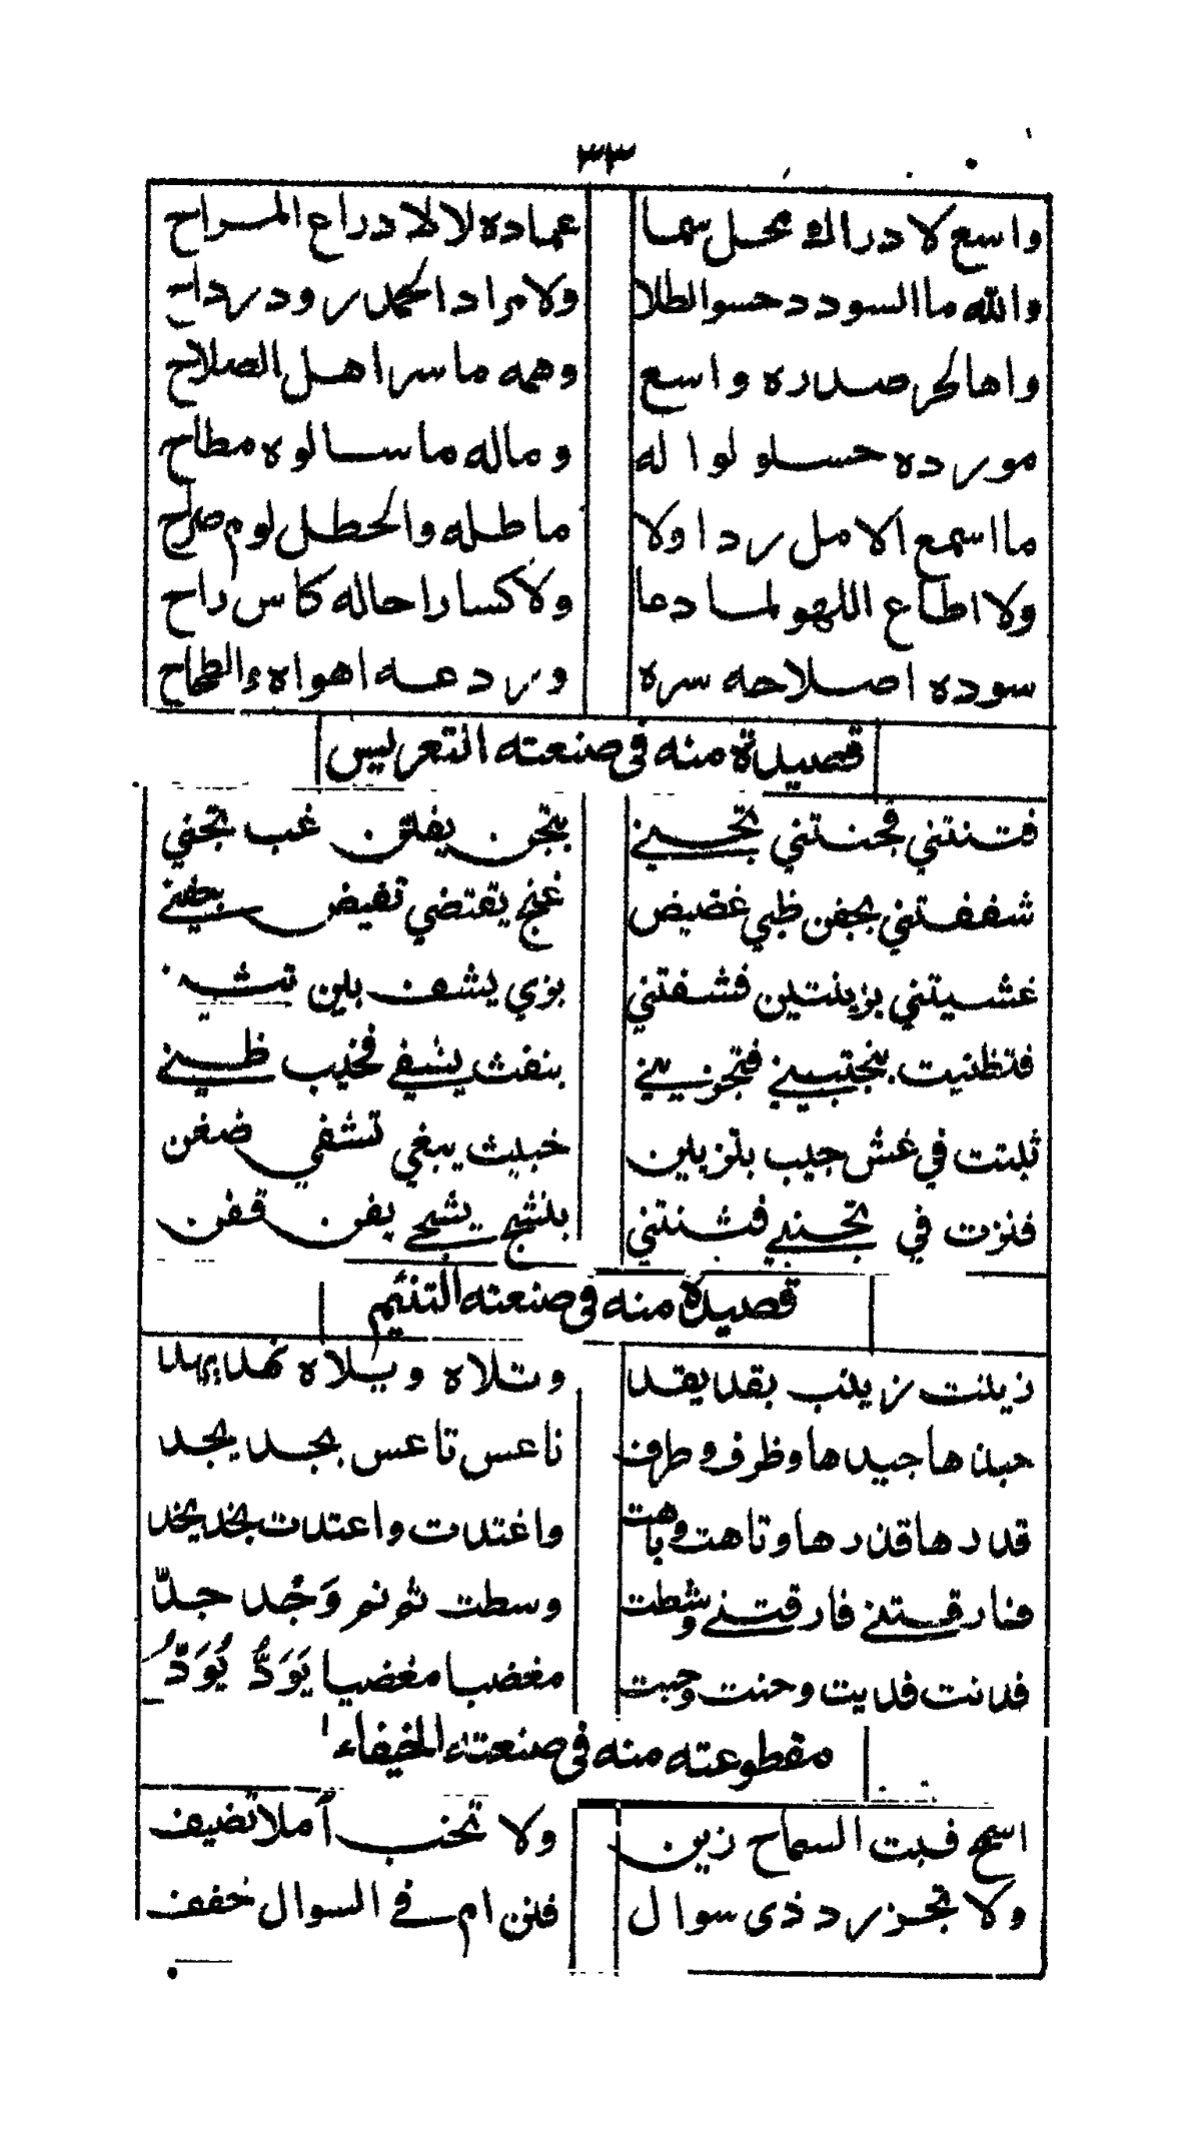 ٣٣
واسع لادراك محل سما عماده لا لادراع المراح
والله ما السودد حسو الطلا ولا مراد الحمد رود رداح
واها لحر صدره واسع وهمه ما سر اهل الصلاح
مورده حسلو لواله وماله ما سالوه مطاح
ما اسمع الامل ردا ولا ماطله والحطل لوم صراح
ولا اطاع اللهو لما دعا ولا كسا راحا له كاس راح
سوده اصلاحه سره وردعه اهواءه والطماح
قصيدة منه فى صنعته التعريس
فتنتني فجننتني تجني بتجن يفتن غب تجني
شغفتني بجفن ظبي غضيض غنج يقتضي تغيض جفني
غشيتني بزينتين فشفتني بزي يشف بين تثني
فتظنيت بتجتبيني فتجزيني بنفث يشفي فخيب ظني
ثبتت في غش جيب بتزيين خبيث يبغي تشفي ضغن
فنزت في تجنبي فثنتني بنشيج يشجي يفن ففن
قصيدة منه فى صنعته التنئيم
زينت زينب بقد يقد وتلاه ويلاه نهد يهد
جيدها جيدها وظرف وطرف ناعس تاعس بجد يجد
قدرها قدرها وتاهت وباهت واغتدت واعتدت بخد يخد
فارقتني فارقتني وشطت وسطت ثم نم وَجْد جدّ
فدنت فديت وحنت وحيت مغضبا مغضيا يَوَدُّ يُوَدُّ
مقطوعته منه فى صنعته الخيفاء
اسمح فبت السماح زين ولا تخب آملا تضيف
ولا تجز رد ذى سوال فنن ام في السوال خفف